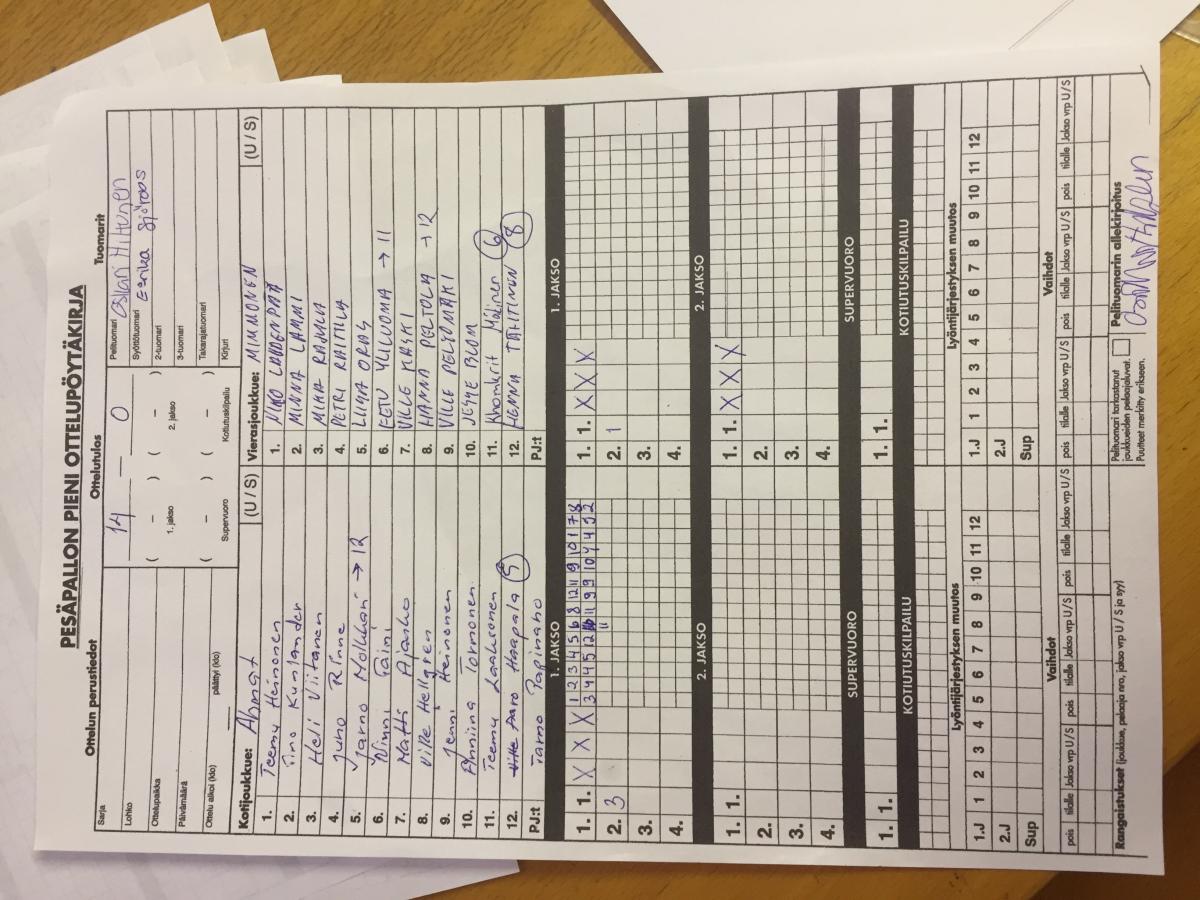 PESÄPALLON PIENI OTTELUPÖYTÄKIRJA
Ottelun perustiedot Ottelutulos Tuomarit
Sarja 14 — 0 Pelituomari Oskari Hiltunen
Lohko Syöttötuomari Eerika Sjöroos
Ottelupaikka ( – ) ( – ) 2-tuomari
Päivämäärä 1. jakso 2. jakso 3-tuomari
( – ) ( – ) Takarajatuomari
Ottelu alkoi (klo) päättyi (klo) Supervuoro Kotiutuskilpailu Kirjuri
Kotijoukkue: Ahmat (U / S) Vierasjoukkue: MIMMONEN (U / S)
1. Teemu Heinonen 1.
2. Timo Kunlander 2. MINNA LAMMI
3. Heli Viitanen 3. MIKA RAJALA
4. Juho Rinne 4. PETRI RAITILA
5. Jarmo → 12 5. LIIMA ORAS
6. Ninni 6. EETU YLILUOMA → 11
7. Matts Ajaako 7. VILLE KASKI
8. Ville Hellgren 8. HANNA PELTOLA → 12
9. Jenni Heinonen 9. VILLE PELTOMÄKI
10. Anniina Tormonen 10. JESSE BLOM
11. Teemu Laaksonen 11. Mälinen 6
12. Aaro Haapala 5 12. HENNA 8
PJ:t Tarmo Papinaho PJ:t
1. JAKSO 1. JAKSO
1. 1. X X X 1 2 3 4 5 6 8 12 11 9 10 1 7 8 1. 1. X X X
2. 3 2. 1
3. 3.
4. 4.
2. JAKSO 2. JAKSO
1. 1. 1. 1. X X X
2. 2.
3. 3.
4. 4.
SUPERVUORO SUPERVUORO
1. 1. 1. 1.
KOTIUTUSKILPAILU KOTIUTUSKILPAILU
Lyöntijärjestyksen muutos Lyöntijärjestyksen muutos
1.J 1 2 3 4 5 6 7 8 9 10 11 12 1.J 1 2 3 4 5 6 7 8 9 10 11 12
2.J 2.J
Sup Sup
Vaihdot Vaihdot
pois tilalle Jakso vrp U / S pois tilalle Jakso vrp U / S pois tilalle Jakso vrp U / S pois tilalle Jakso vrp U / S pois tilalle Jakso vrp U / S pois tilalle Jakso vrp U / S
Rangaistukset (joukkue, pelaaja nro, jakso vrp U / S ja syy) Pelituomari tarkastanut Pelituomarin allekirjoitus
joukkueiden pelaajaluvat.
Puutteet merkitty erikseen.